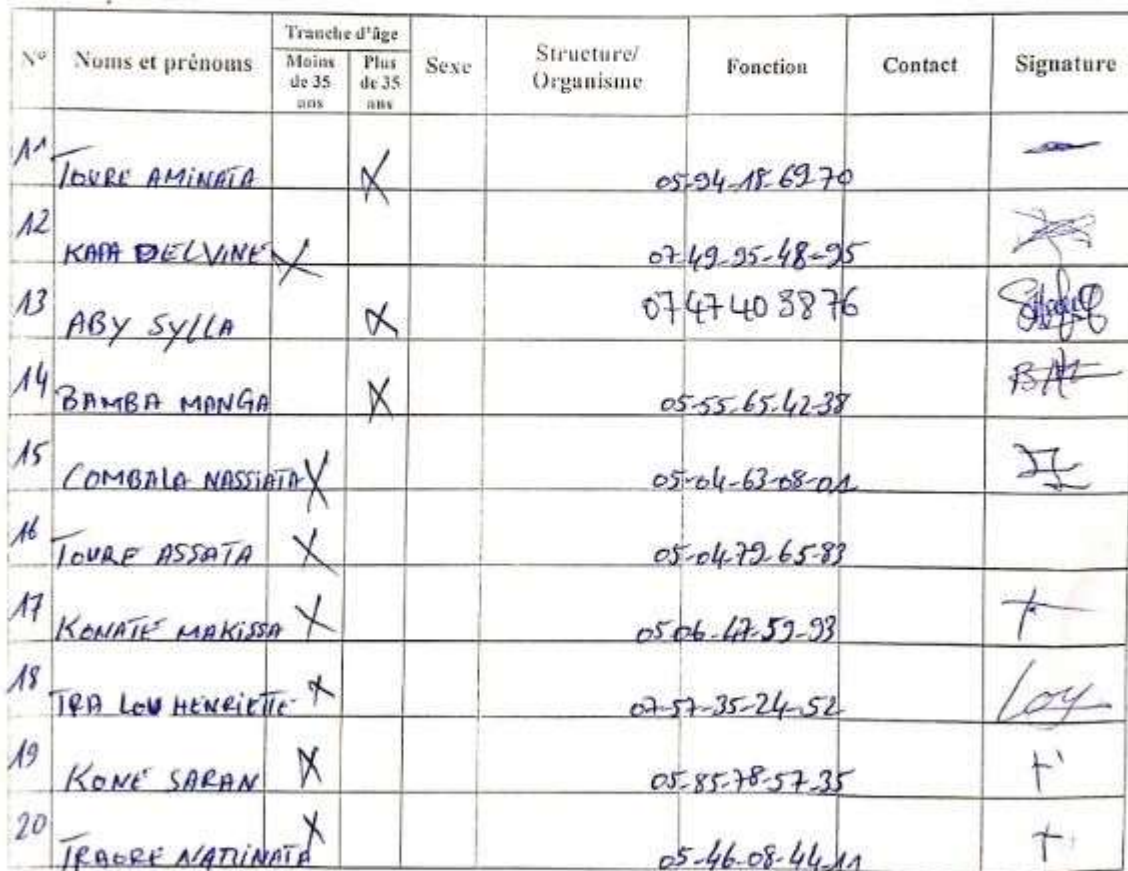 N° Noms et prénoms Tranche d'âge Moins de 35 ans Plus de 35 ans Sexe Structure/ Organisme Fonction Contact Signature
11 TOURE AMINATA X 05-94-18-69-70
12 KAPA DELVINE X 07-49-95-48-95
13 ABY SYLLA X 07 47 40 38 76
14 BAMBA MANGA X 05-55-65-42-38
15 COMBALA NASSIATA X 05-04-63-08-01
16 TOURE ASSATA X 05-04-79-65-83
17 KONATE MAKISSA X 05-06-47-59-93
18 TRA LOU HENRIETTE X 07-57-35-24-52 Loy
19 KONE SARAN X 05-85-78-57-35
20 TRAORE X 05-46-08-44-11